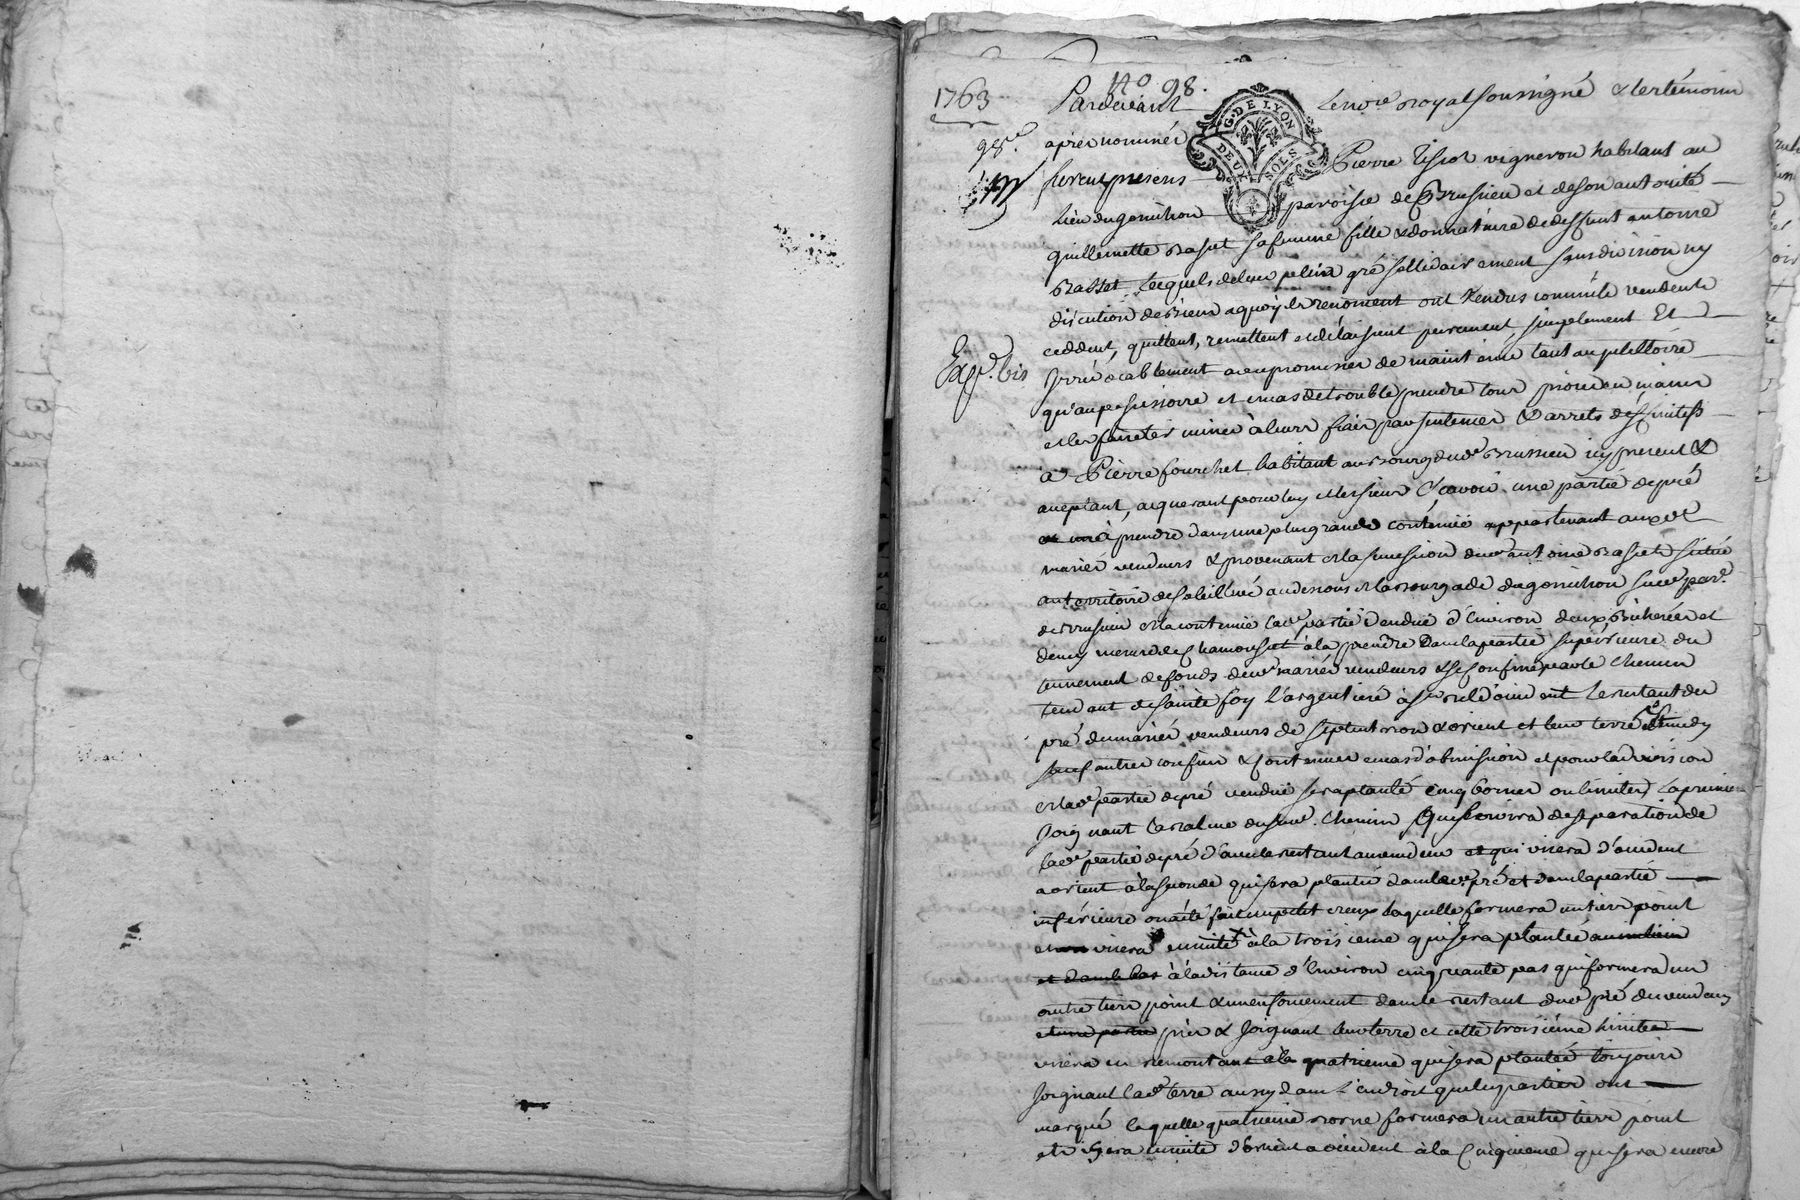 1763
N° 98.
98e
Exp. bis
G. DE LYON
DEUX SOLS
Pardevant Le nore royal soussigné & les témoins
apres nommés
furent presens Pierre Tissot vigneron habitant au
Lieu du gonichon paroisse de Brussieu et de son autorité
guillemette Basset sa femme fille & donnataire de deffunt antoine
Basset Lesquels de leur plein gré sollidairement sans division ny
discution de biens a quoy ils renoncent ont vendus comme ils vendent
ceddent, quittent, remettent et délaissent purement simplement Et
irrévocablement avec promesse de maintenir tant au petitoire
qu'au possessoire et en cas de trouble prendre tour prison en mains
et les faire terminer à leurs frais par sentences & arrets deffinitifs
à Pierre fourchet habitant au bourg dud Brussieu icy present &
aceptant, acquerant pour luy et les siens Sçavoir une partie de pré
à prendre dans une plus grande contenüe appartenant auxd
mariés vendeurs & provenant de la succession dud antoine Basset située
au territoire de au dessous de la bourgade du gonichon sud par.
de Brussieu de la contenüe lade partie vendüe d'Environ deux Bicherées et
demy mesure de chamousset à la prendre Dans la partie supérieure du
tennement de fonds desd mariés vendeurs & se confine par le Chemin
tendant de sainte foy L'argentiere à Le restant du
pré des mariés vendeurs de septentrion & orient et leur terre de midy
sauf autres confins & contenues en cas d'obmission et pour la division
de lade partie de pré vendüe sera planté Cinq bornes ou limites La premiere
Joignant La dud. Chemin Qui servira de separation de
lade partie de pré d'avec le restant aux vendeurs et qui visera d'occident
a orient à la seconde qui sera plantée dans led. pré et dans la partie
inférieure ou a été fait un petit creux laquelle formera un tiers point
et visera ensuite à la troisieme qui sera plantée au milieu
et dans le bas à la distance d'Environ cinquante pas qui formera un
autre tiers point & un enfoncement dans le restant dud pré des vendeurs
près & Joignant leur terre et cette troisième limite
visera en remontant à la quatrieme qui sera plantée toujours
Joignant lade terre aussy dans L'endroit que les parties ont
marqué laquelle quatrieme borne formera un autre tiers point
et visera ensuite d'orient a occident à la Cinquieme qui sera encore